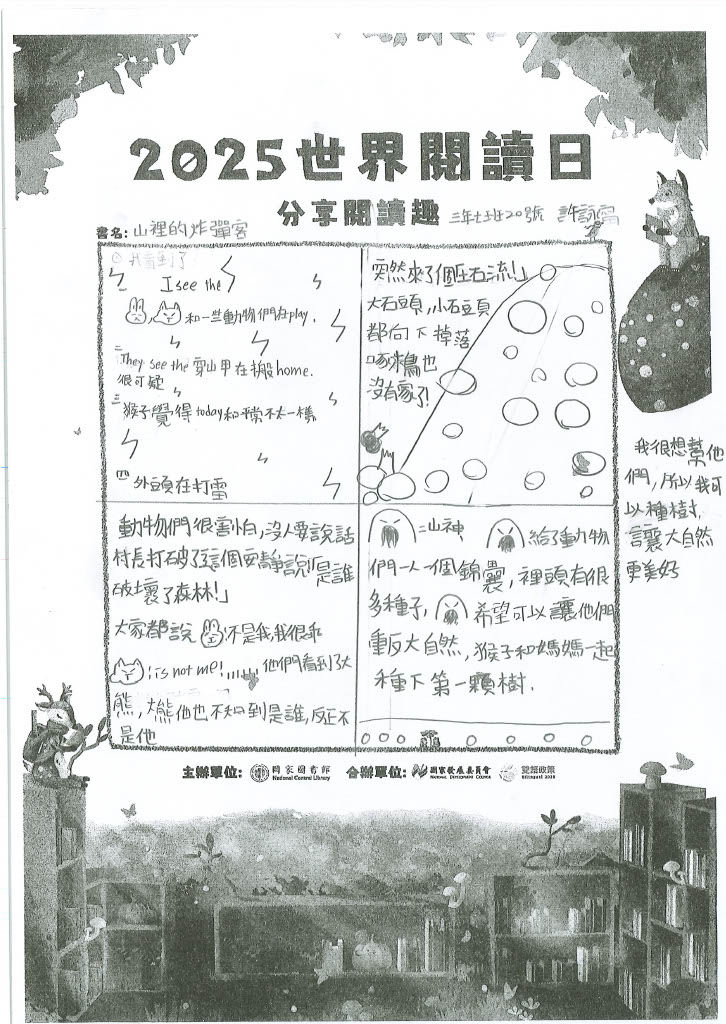 2025世界閱讀日
分享閱讀趣
三年七班20號 許詠甯
書名: 山裡的炸彈客
我看到了
I see the
和一些動物們在play.
二
They see the 穿山甲在搬home.
很可疑
三
猴子覺得today和平常不太一樣
四 外頭在打雷
突然來了個土石流!」
大石頭,小石頭
都向下掉落
啄木鳥也
沒有家了!
動物們很害怕,沒人要說話
村長打破了這個安靜說「是誰
破壞了森林!」
大家都說 不是我,我很乖
is not me!...... 他們看到了大
熊,大熊他也不知到是誰,反正不
是他
=山神 給了動物
們一人一個錦囊,裡頭有很
多種子, 希望可以讓他們
重反大自然,猴子和媽媽一起
種下第一顆樹.
我很想幫他
們,所以我可
以種樹,
讓大自然
更美好
主辦單位: 國家圖書館 National Central Library 合辦單位: 國家發展委員會 NATIONAL DEVELOPMENT COUNCIL 雙語政策 BILINGUAL 2030